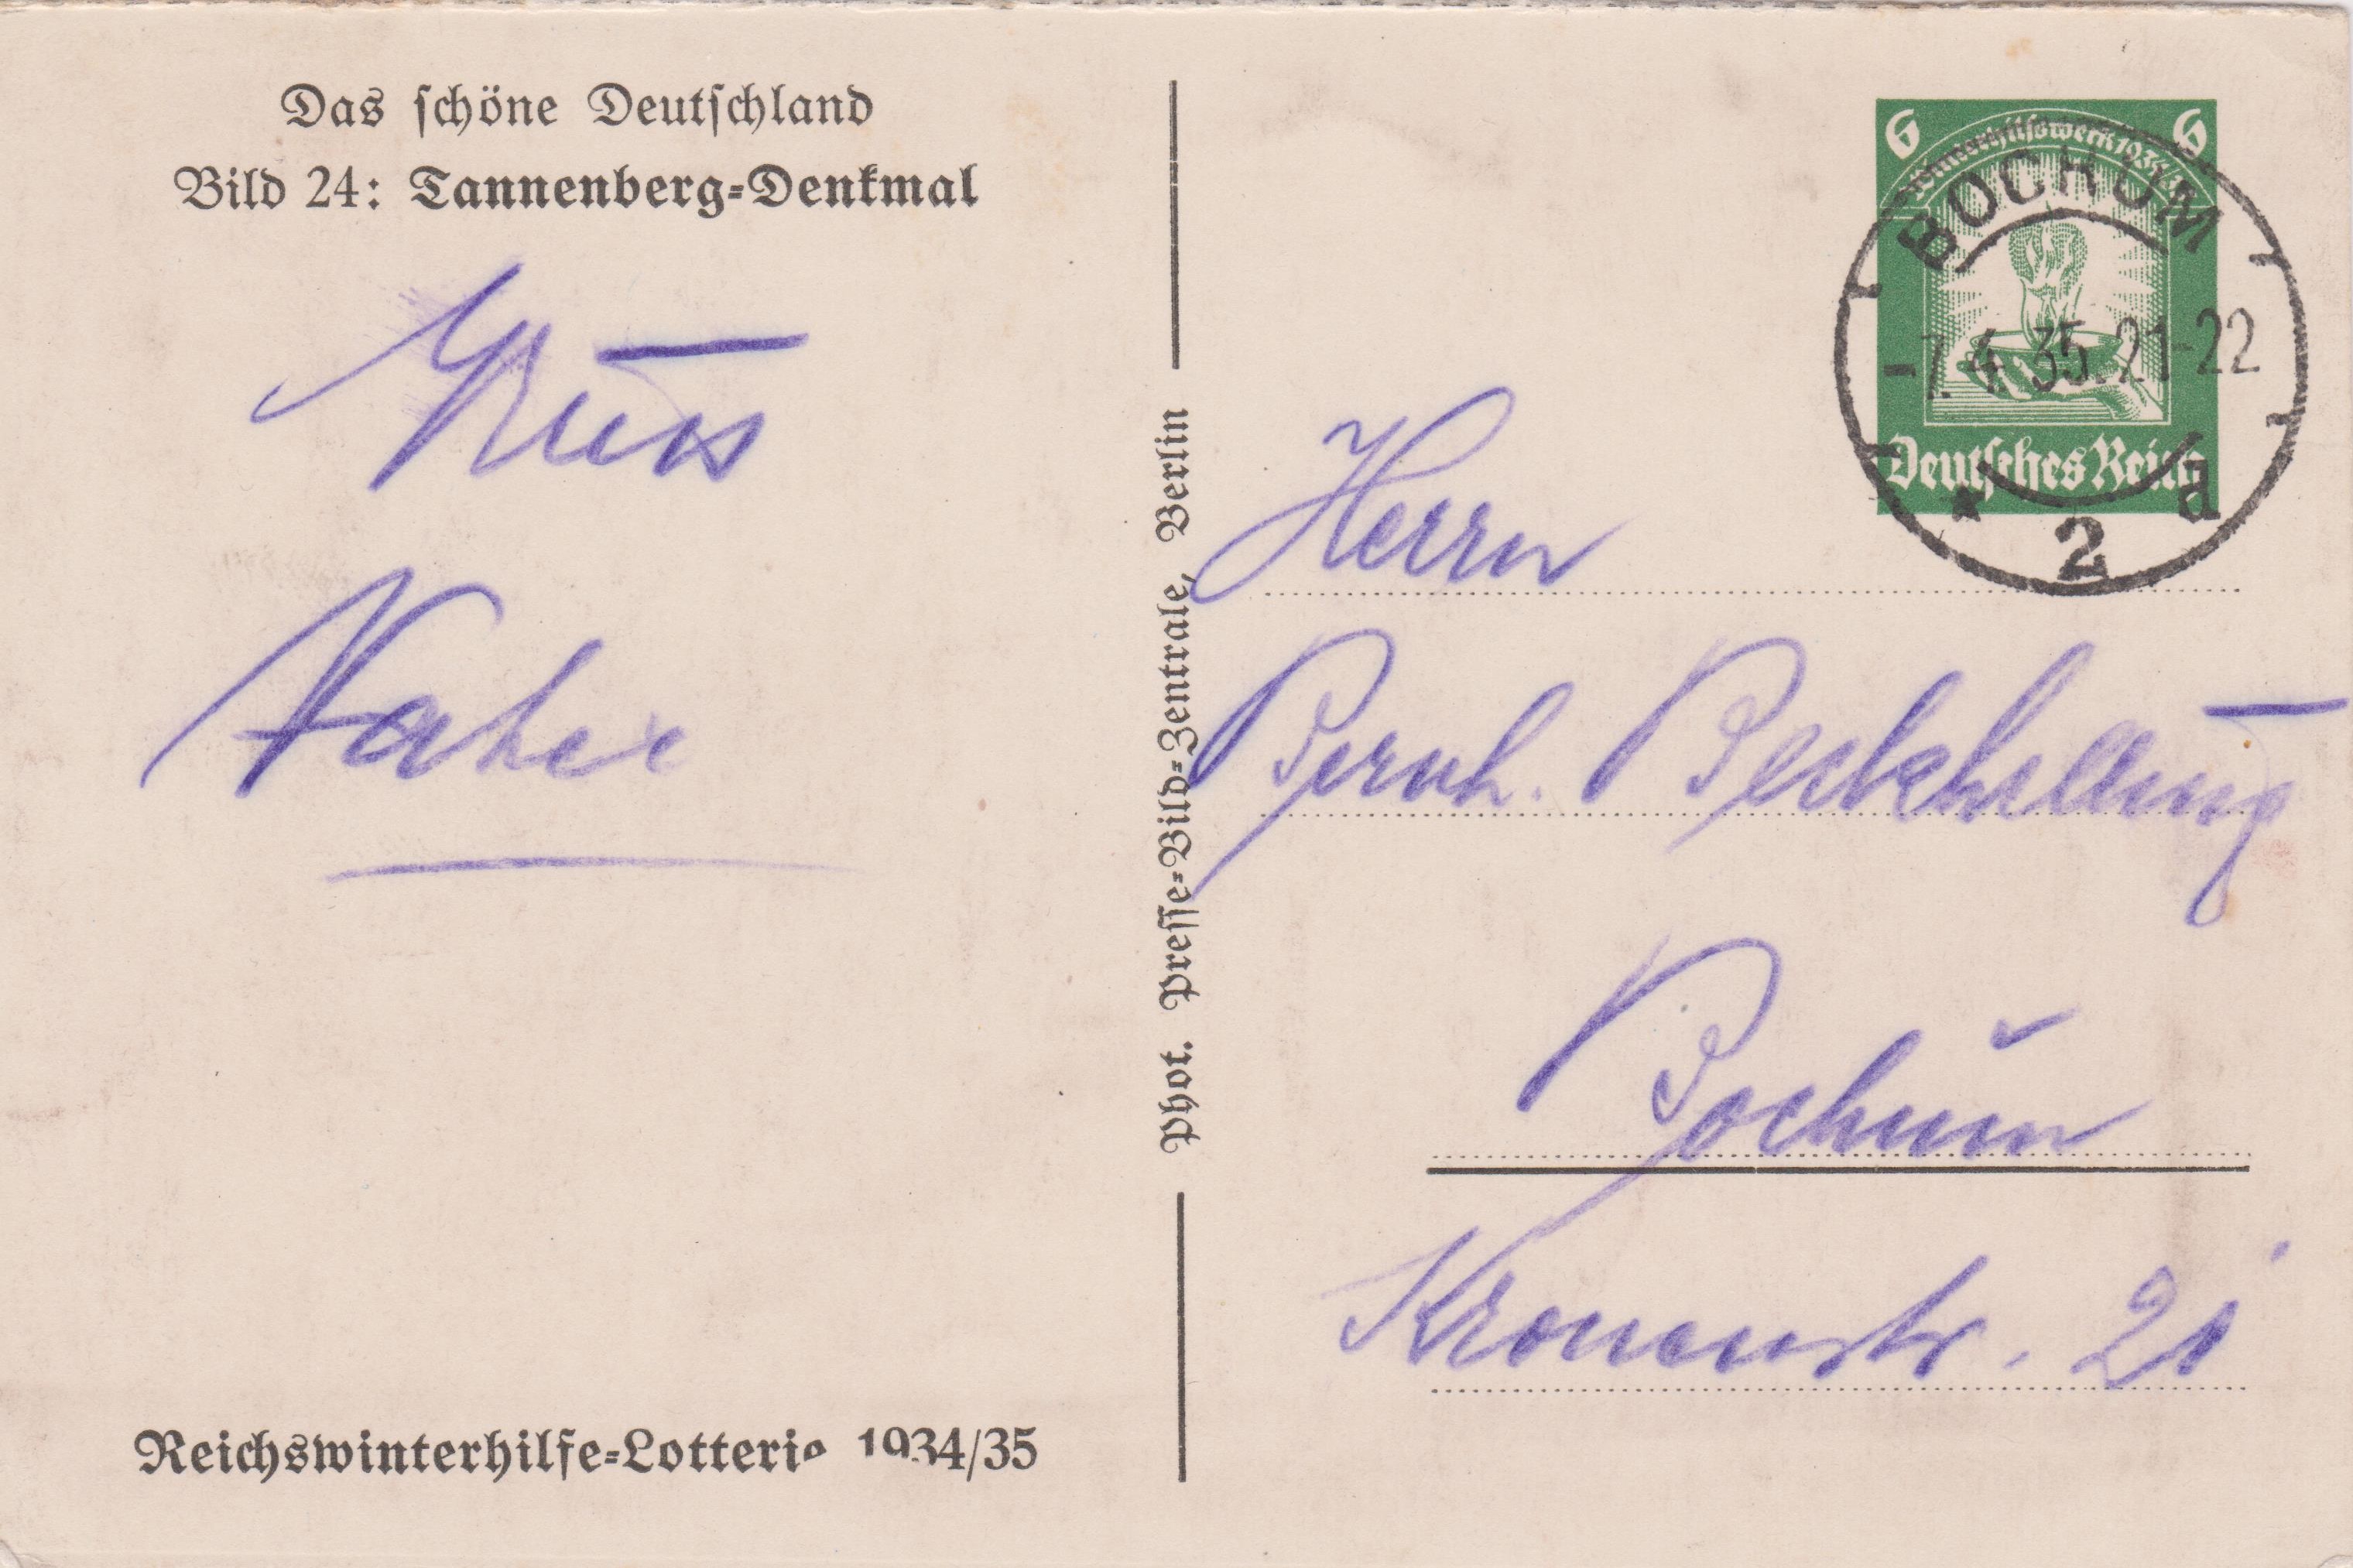 Das schöne Deutschland
Bild 24: Tannenberg-Denkmal
Gruss
Vater
Reichswinterhilfe-Lotterie 1934/35
Phot. Presse-Bild-Zentrale, Berlin
6 6
Winterhilfswerk 1934/35
Deutsches Reich
BOCHUM
-7.4.35.21-22
* 2 a
Herrn
Bernh.
Bochum
Kronenstr. 21